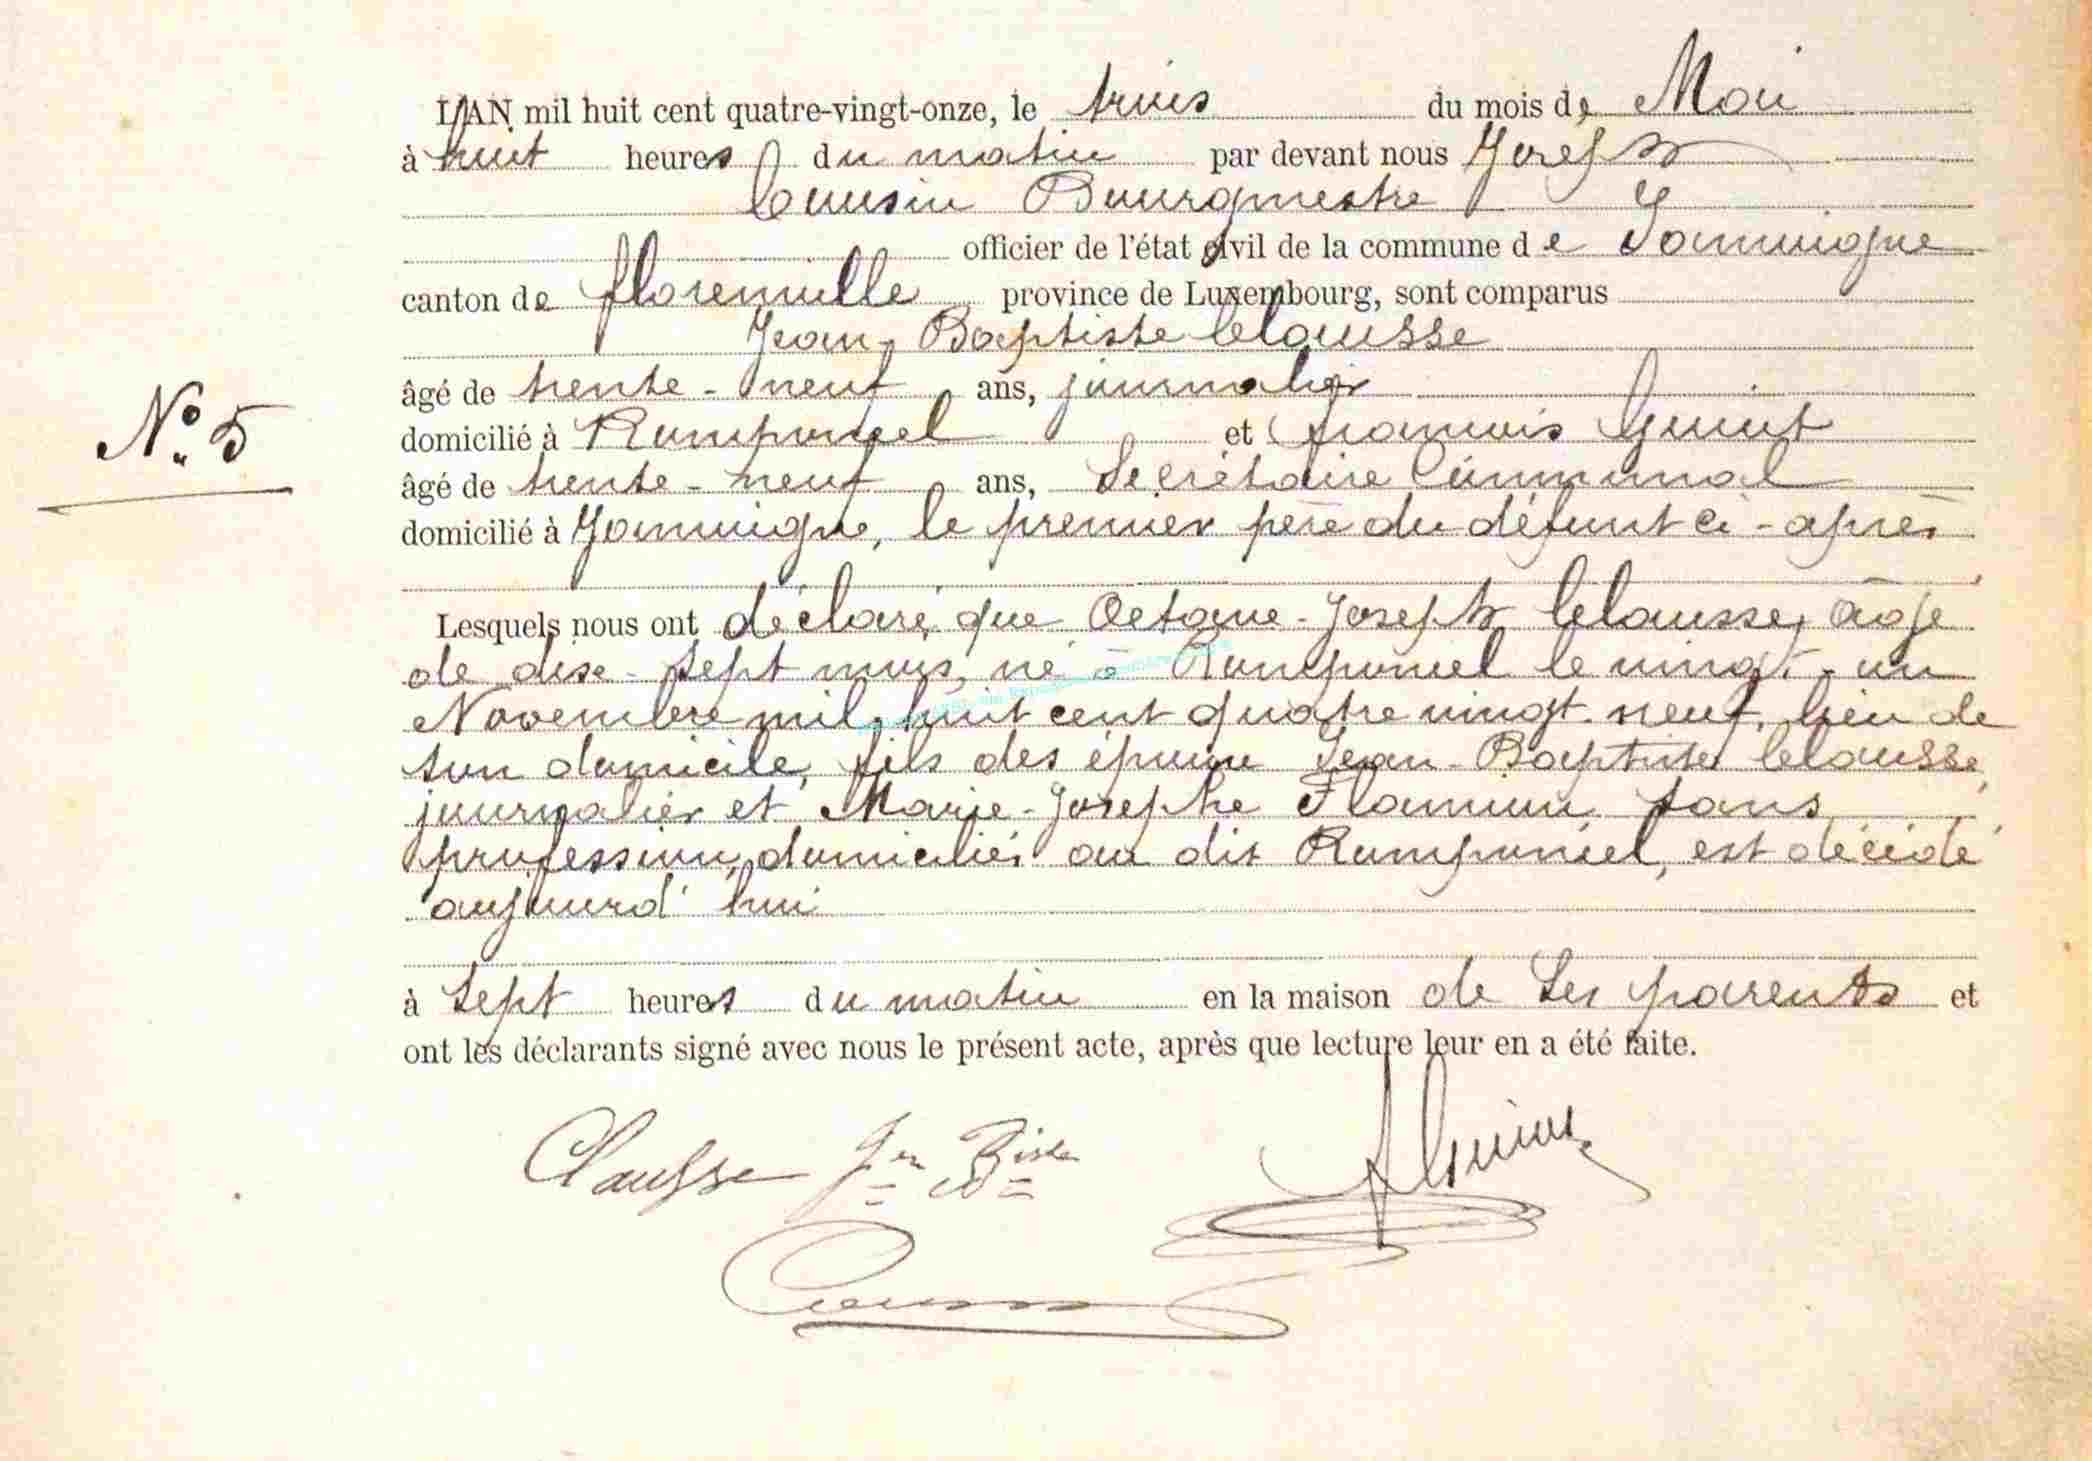 L'AN mil huit cent quatre-vingt-onze, le trois du mois de Mai
à huit heures du matin par devant nous Joseph
Cousin Bourgmestre
officier de l'état civil de la commune de Jamoigne
canton de florenville province de Luxembourg, sont comparus
Jean-Baptiste Clausse
âgé de trente-neuf ans, journalier
N° 5
domicilié à Romponcel et françois Guiot
âgé de trente-neuf ans, Secrétaire Communal
domicilié à Jamoigne, le premier père du défunt ci-après
Lesquels nous ont déclaré que Octave-Joseph Clausse, âgé
de dix-sept mois, né à Romponcel le vingt-un
Novembre mil huit cent quatre vingt-neuf, lieu de
son domicile, fils des époux Jean-Baptiste Clausse,
journalier et Marie-Josephe Flamion sans
profession, domiciliés au dit Romponcel, est décédé
aujourd'hui
à Sept heures du matin en la maison de Ses parents et
ont les déclarants signé avec nous le présent acte, après que lecture leur en a été faite.
Clausse Jean Bste
Guiot
Cousin